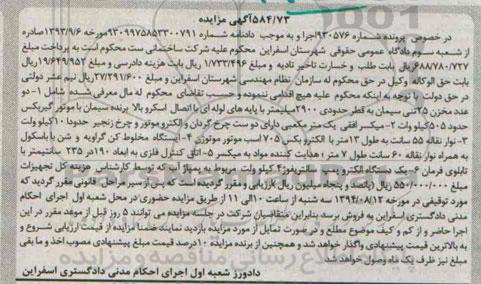 ۵۸۴/۷۳آگهی مزایده
در خصوص پرونده شماره ۹۳۰۵۷۶اجرا و به موجب دادنامه شماره ۹۳۰۹۹۷۵۸۵۳۳۰۰۷۹۱مورخه ۱۳۹۳/۹/۶صادره
از شعبه سوم دادگاه عمومی حقوقی شهرستان اسفراین محکوم علیه شرکت ساختمانی ست محکوم است به پرداخت مبلغ
۶۸۸/۷۸۰/۷۲۷ریال بابت طلب و خسارت تاخیر تادیه و مبلغ ۱/۷۳۳/۴۹۶ ریال بابت هزینه دادرسی و مبلغ ۱۹/۶۴۹/۹۵۲ریال
بابت حق الوکاله وکیل در حق محکوم له سازمان نظام مهندسی شهرستان اسفراین و مبلغ ۲۷/۲۹۱/۶۰۰ریال نیم عشر دولتی
در حق دولت با توجه به اینکه محکوم علیه هیچ اقدامی ننموده و حسب تقاضای محکوم له مال معرفی شده شامل ۱-دو
عدد مخزن ۲۵تنی سیمان به قطر حدودی ۲۹۰۰میلیمتر با پایه های لوله ای با اتصال اسکرو بالا برنده سیمان با موتور گیربکس
حدود ۵۰۵کیلو وات ۲- میکسر افقی یک متر مکعبی دارای دو ست چرخ گردان و الکترو موتور و چرخ زنجیر حدودا ۱۰کیلو وات
۳- نوار نقاله ۵۵ سانت به طول ۱۳متر با الکترو بکس ۷۰۵ اسب موتور موتوژن ۴- ایستگاه مخلوط کن گراویه و شن با باسکول
به همراه نوار نقاله ۶۰ سانت طول ۷ متر ، هدایت کننده مواد به میکسر ۵- اتاق کنترل فلزی به ابعاد ۱۹۰در ۲۳۵ سانتیمتر با
تابلوی فرمان ۶- یک دستگاه الکترو پمپ مربوط به پمپاژ آب که توسط کارشناس هزینه کل تجهیزات
مبلغ ۵۵۰/۰۰۰/۰۰۰ ریال (پانصد و پنجاه میلیون ریال)ارزیابی و مقرر گردیده است که پس از سیر مراحل قانونی مقرر گردید که
مورد توقیفی در مورخه ۱۳۹۴/۰۸/۱۲ سه شنبه از ساعت ۱۰الی ۱۱ از طریق مزایده حضوری در محل شعبه اول اجرای احکام
مدنی دادگستری اسفراین به فروش برسد بنابراین متقاضیان شرکت در جلسه مزایده می توانند ۵ روز قبل از موعد مقرر در این
اجرا حاضر و از کم و کیف موضوع مطلع و در صورت تمایل از مورد مزایده بازدید نمایند ضمنا مزایده از قیمت ارزیابی شروع و
به بالاترین قیمت پیشنهادی واگذار خواهد شد و همچنین از برنده مزایده ۱۰درصد قیمت مبلغ پیشنهادی مصوب اخذ و ما بقی
مبلغ نیز ظرف یک ماه وصول خواهد شد.
دادورز شعبه اول اجرای احکام مدنی دادگستری اسفراین